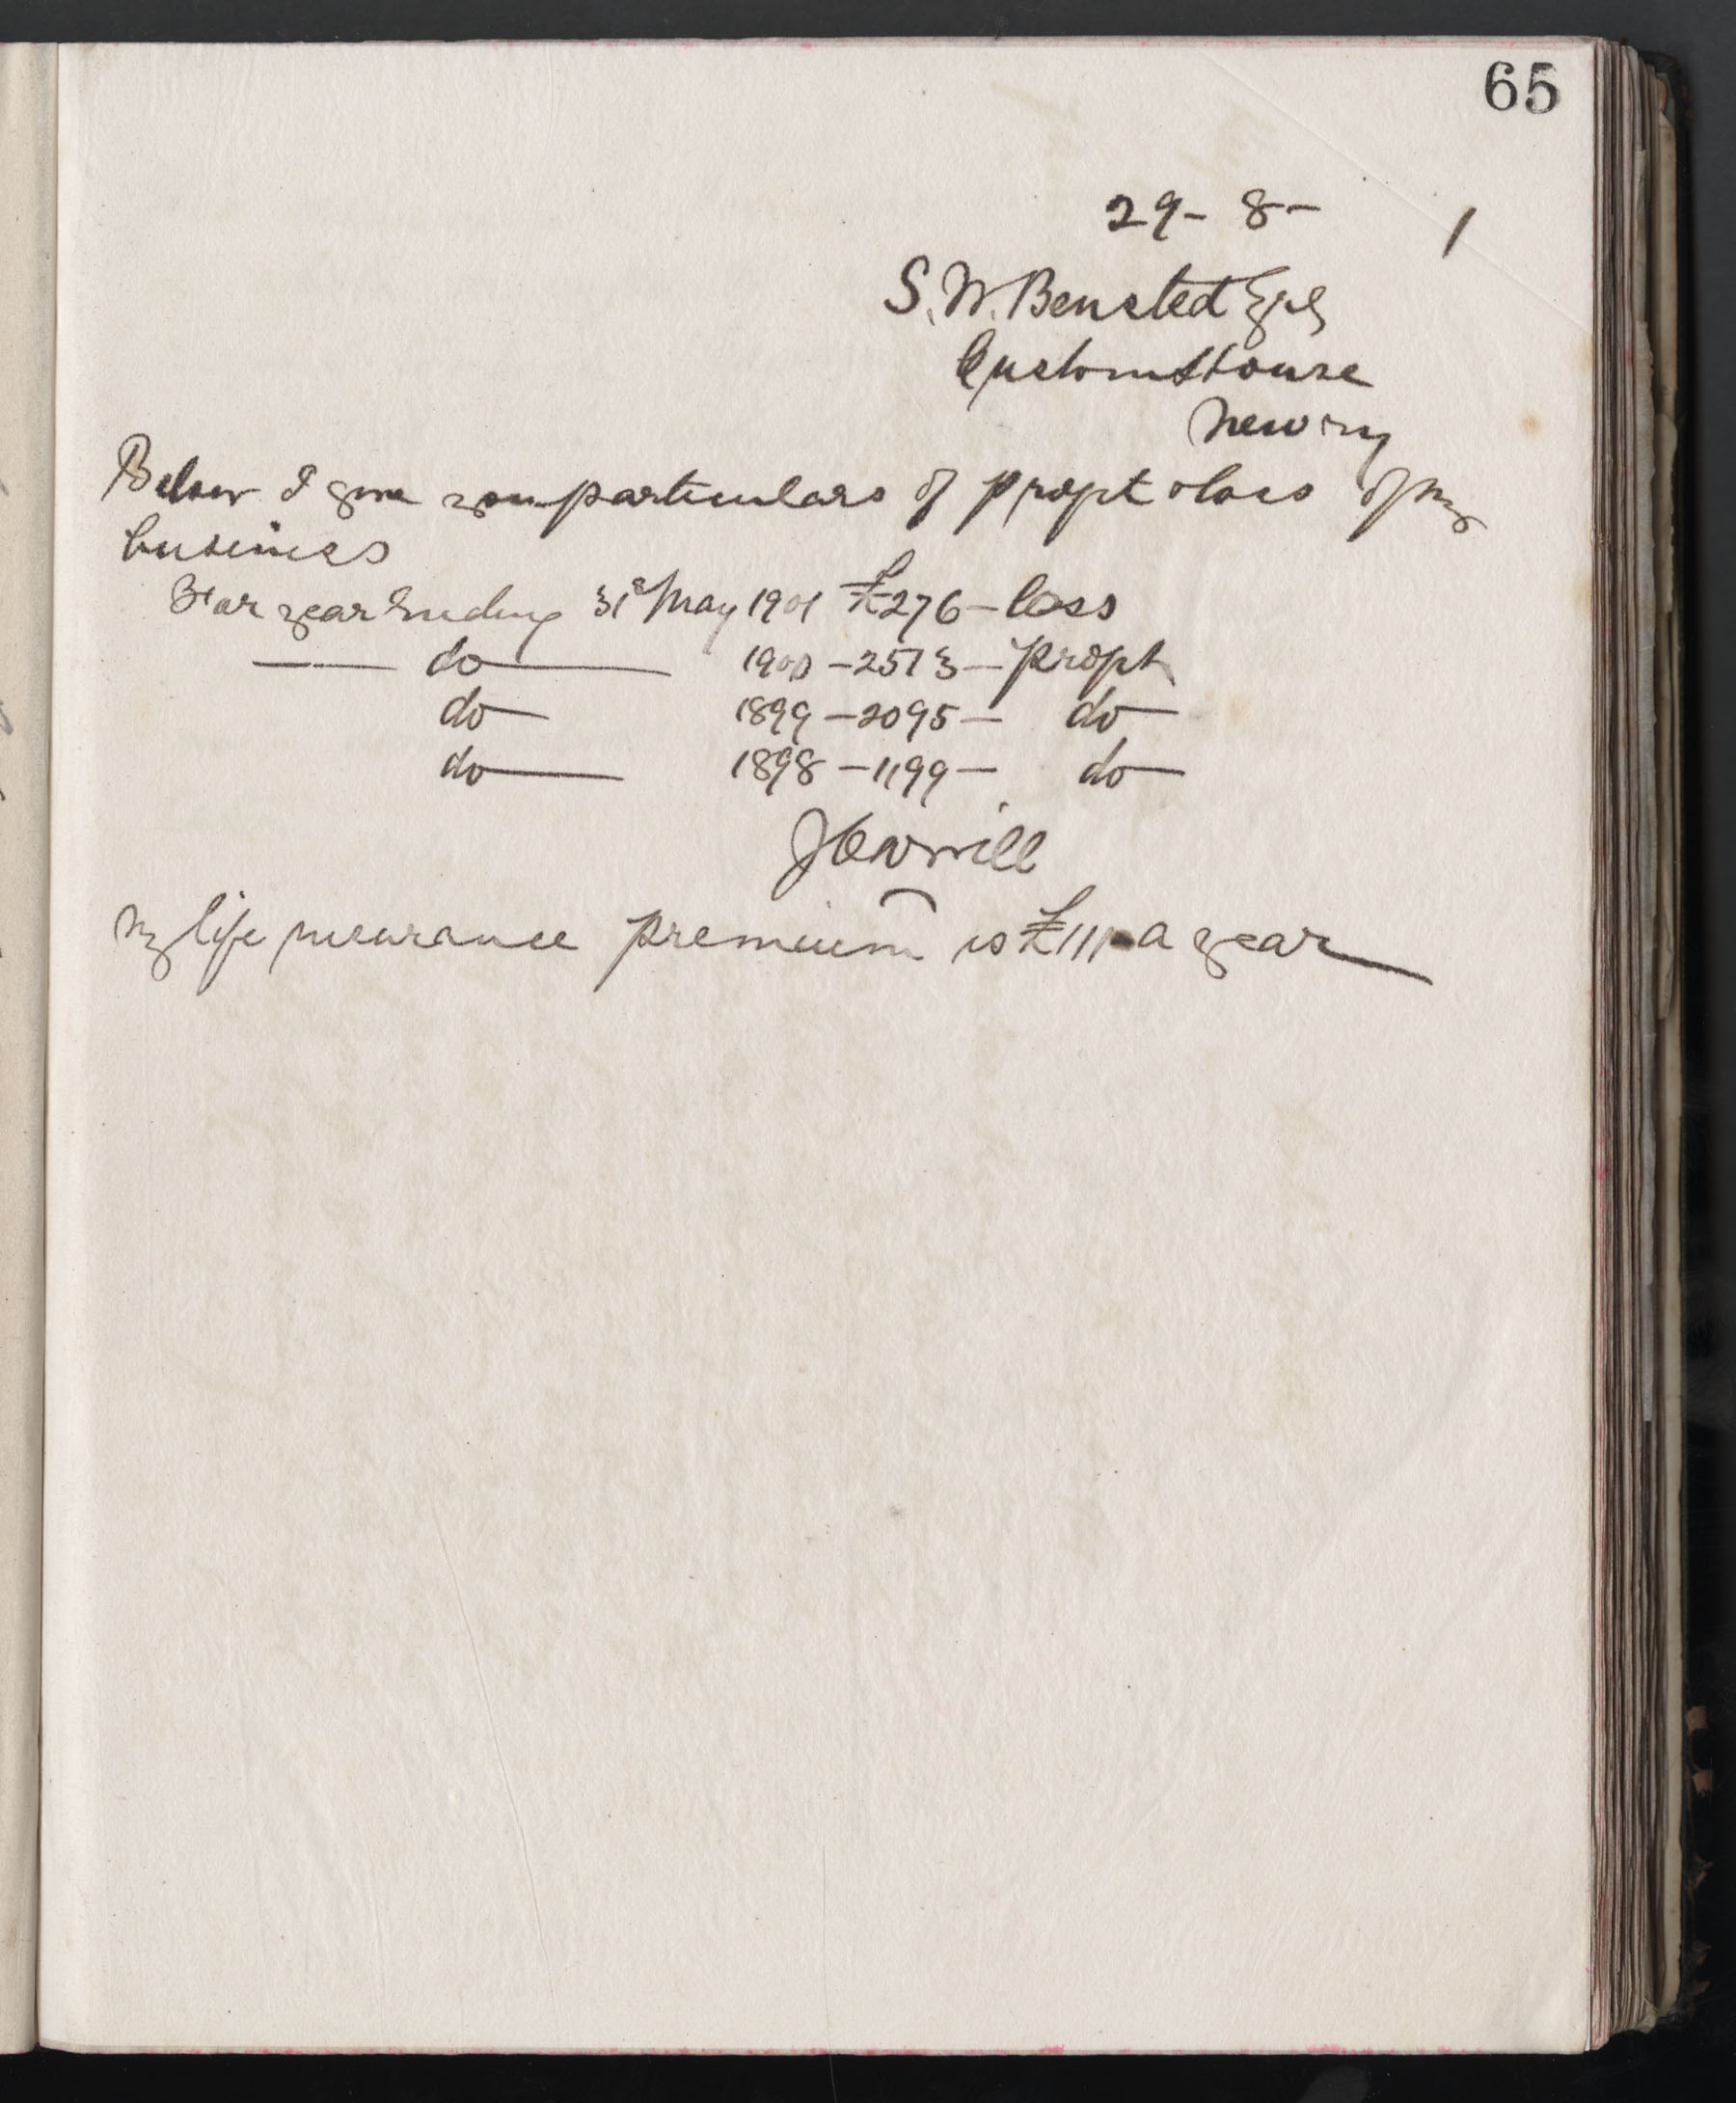 65
29- 8- 1
S. W. Bensted Esq
Custom House
Newry
Below I give you particulars of profit & loss of my
business
For year Ending 31st May 1901 £276 - loss
— do — 1900 - 2573 - profit
do — 1899 - 2095 - do —
do — 1898 - 1199 - do —
My life insurance premium is £111 a year